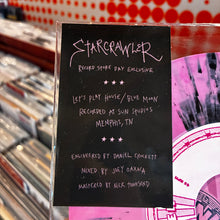 STARCRAWLER
RECORD STORE DAY EXCLUSIVE
LET'S PLAY HOUSE/BLUE MOON
RECORDED AT SUN STUDIOS
MEMPHIS, TN
ENGINEERED BY DANIEL CROCKETT
MIXED BY JOEY OAXACA
MASTERED BY NICK TOWNSEND